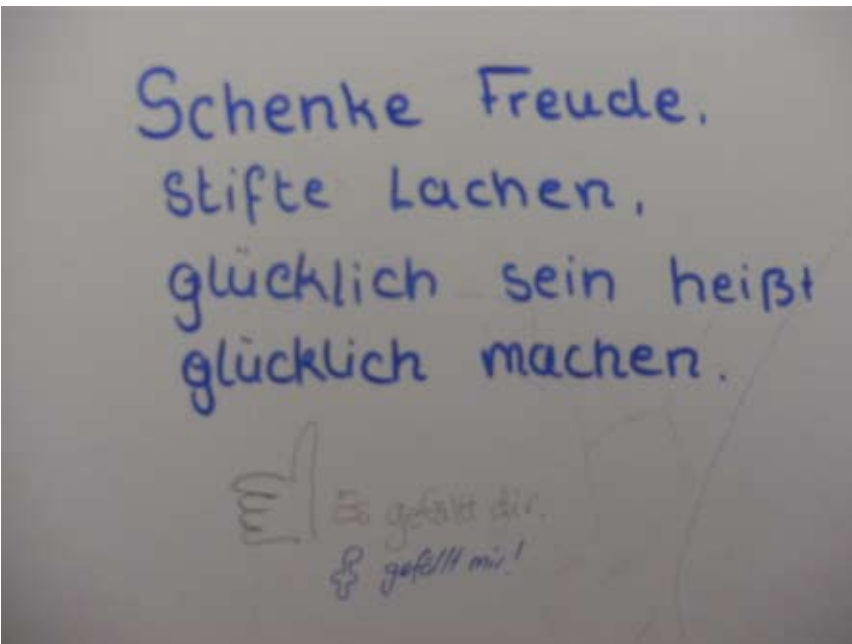 Schenke Freude,
stifte Lachen,
glücklich sein heißt
glücklich machen.
Es gefällt dir.
gefällt mir!